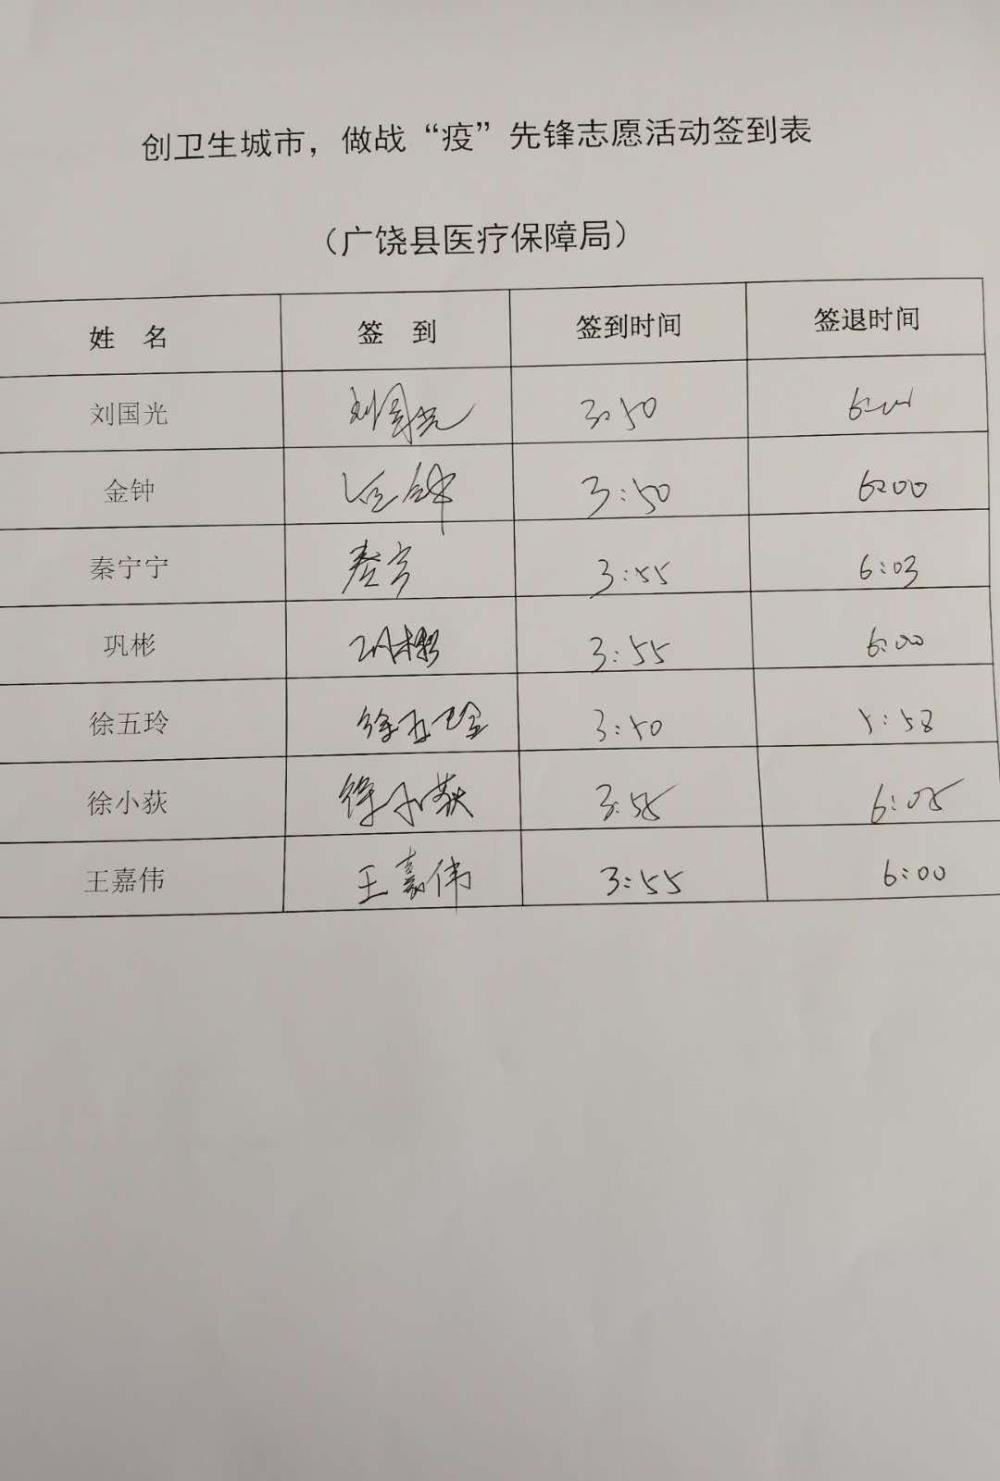 创卫生城市，做战“疫”先锋志愿活动签到表
（广饶县医疗保障局）
姓 名 签 到 签到时间 签退时间
刘国光 刘国光 3:50
金钟 金钟 3:50 6:00
秦宁宁 秦宁 3:55 6:03
巩彬 巩彬 3:55 6:00
徐五玲 徐五玲 3:50 5:58
徐小荻 徐小荻 3:55 6:05
王嘉伟 王嘉伟 3:55 6:00